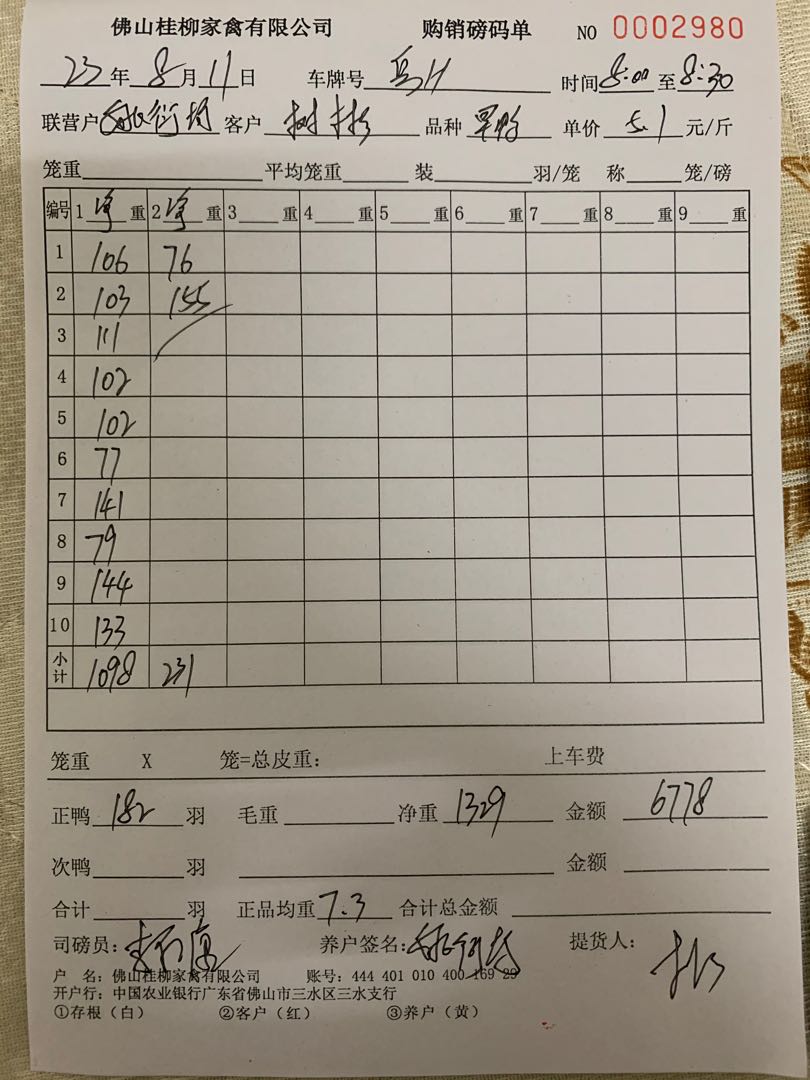 佛山桂柳家禽有限公司 购销磅码单 NO 0002980
23年8月11日 车牌号 时间8:00至8:30
联营户 客户 树彬 品种 单价 5.1 元/斤
笼重 平均笼重 装 羽/笼 称 笼/磅
编号 1 净 重 2 净 重 3 重 4 重 5 重 6 重 7 重 8 重 9 重
1 106 76
2 103 155
3 111
4 102
5 102
6 77
7 141
8 79
9 144
10 133
小计 1098 231
笼重 X 笼=总皮重: 上车费
正鸭 182 羽 毛重 净重 1329 金额 6778
次鸭 羽 金额
合计 羽 正品均重 7.3 合计总金额
司磅员: 养户签名: 提货人:
户 名: 佛山桂柳家禽有限公司 账号: 444 401 010 400 169 29
开户行: 中国农业银行广东省佛山市三水区三水支行
①存根(白) ②客户(红) ③养户(黄)